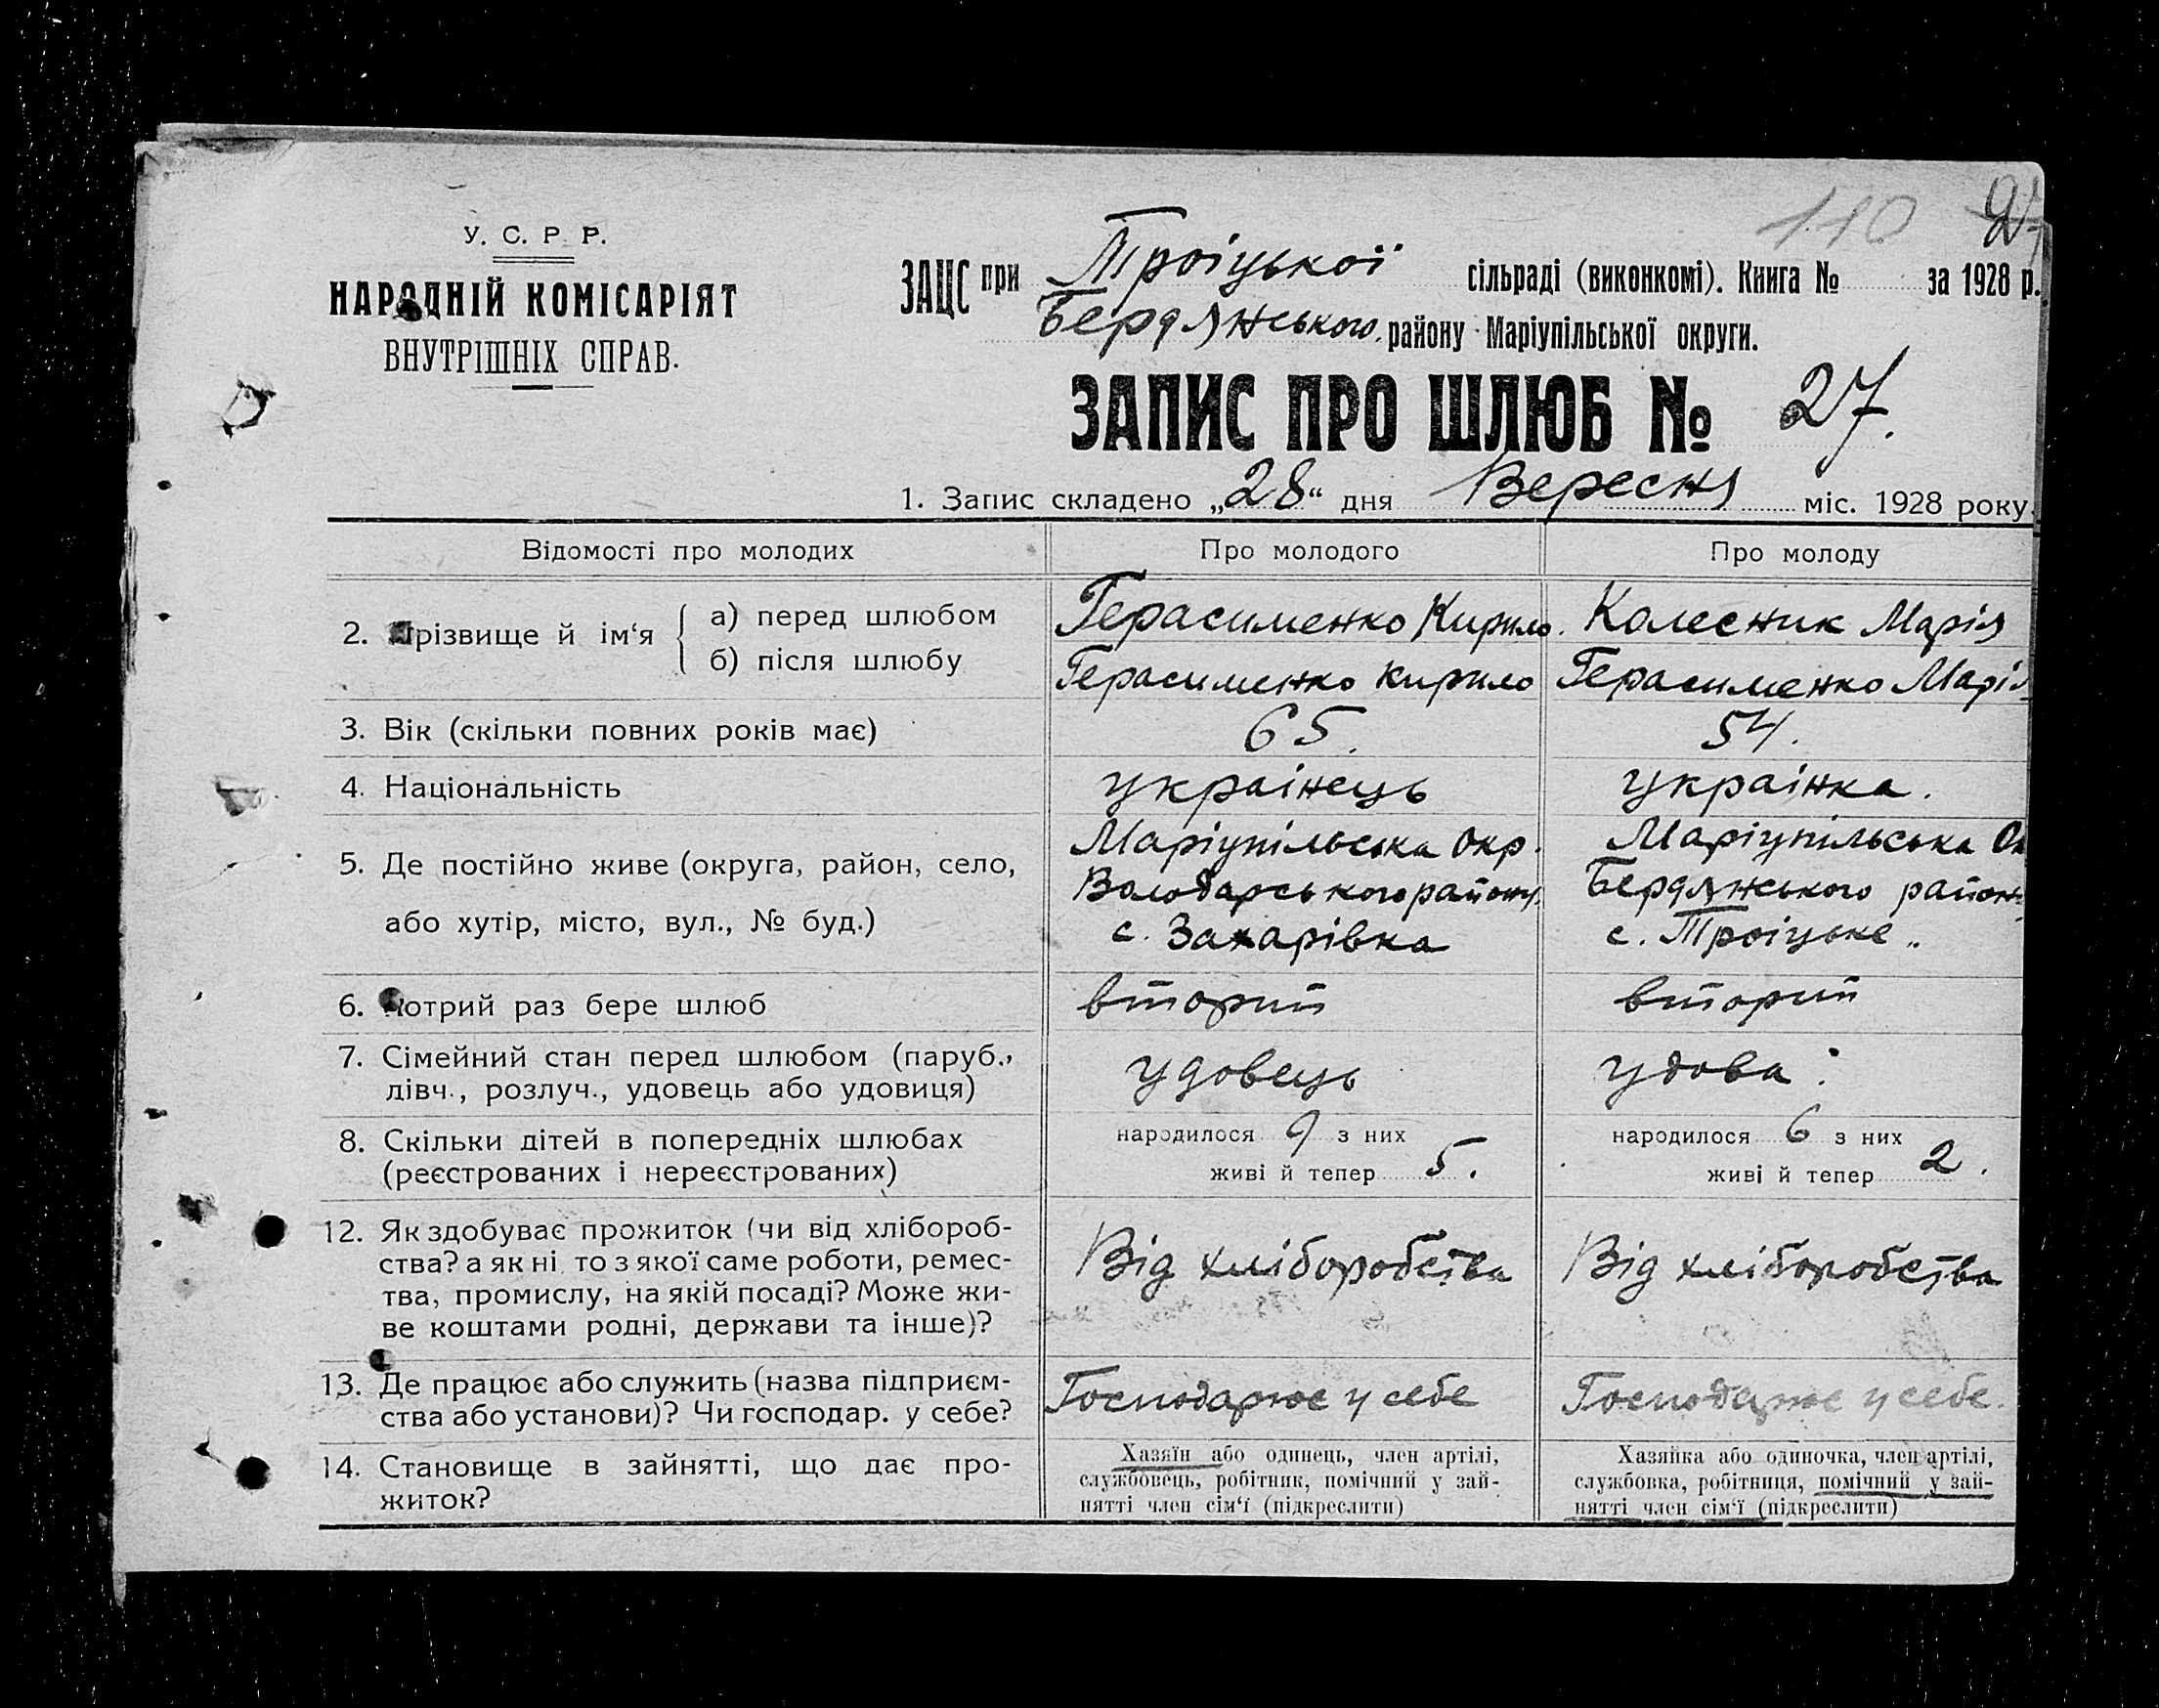 110
У. С. Р. Р.
НАРОДНІЙ КОМІСАРІЯТ
ВНУТРІШНІХ СПРАВ.
ЗАЦС при Троіцької сільраді (виконкомі). Книга № за 1928 р.
Бердянського району Маріупільської округи.
ЗАПИС ПРО ШЛЮБ № 27.
1. Запис складено „28“ дня Вересня міс. 1928 року.
Відомості про молодих
Про молодого
Про молоду
2. Прізвище й ім‘я
а) перед шлюбом
Герасименко Кирило.
Колесник Марія
б) після шлюбу
Герасименко Кирило
Герасименко Марія
3. Вік (скільки повних років має)
65.
54.
4. Національність
украінець
украінка.
5. Де постійно живе (округа, район, село,
або хутір, місто, вул., № буд.)
Маріупільська Окр.
Володарського району.
с. Захарівка
Маріупільська Ок
Бердянського район
с. Троіцьке „
6. Котрий раз бере шлюб
вторий
вторий
7. Сімейний стан перед шлюбом (паруб.,
дівч., розлуч., удовець або удовиця)
удовець
удова.
8. Скільки дітей в попередніх шлюбах
(реєстрованих і нереєстрованих)
народилося 9 з них
живі й тепер 5.
народилося 6 з них
живі й тепер 2.
12. Як здобуває прожиток (чи від хлібороб-
ства? а як ні то з якої саме роботи, ремес-
тва, промислу, на якій посаді? Може жи-
ве коштами родні, держави та інше)?
Від хліборобства
Від хліборобства
13. Де працює або служить (назва підприєм-
ства або установи)? Чи господар. у себе?
Господарює у себе
Господарює у себе.
14. Становище в зайнятті, що дає про-
житок?
Хазяїн або одинець, член артілі,
службовець, робітник, помічний у зай-
нятті член сім‘ї (підкреслити)
Хазяйка або одиночка, член артілі,
службовка, робітниця, помічний у зай-
нятті член сім‘ї (підкреслити)